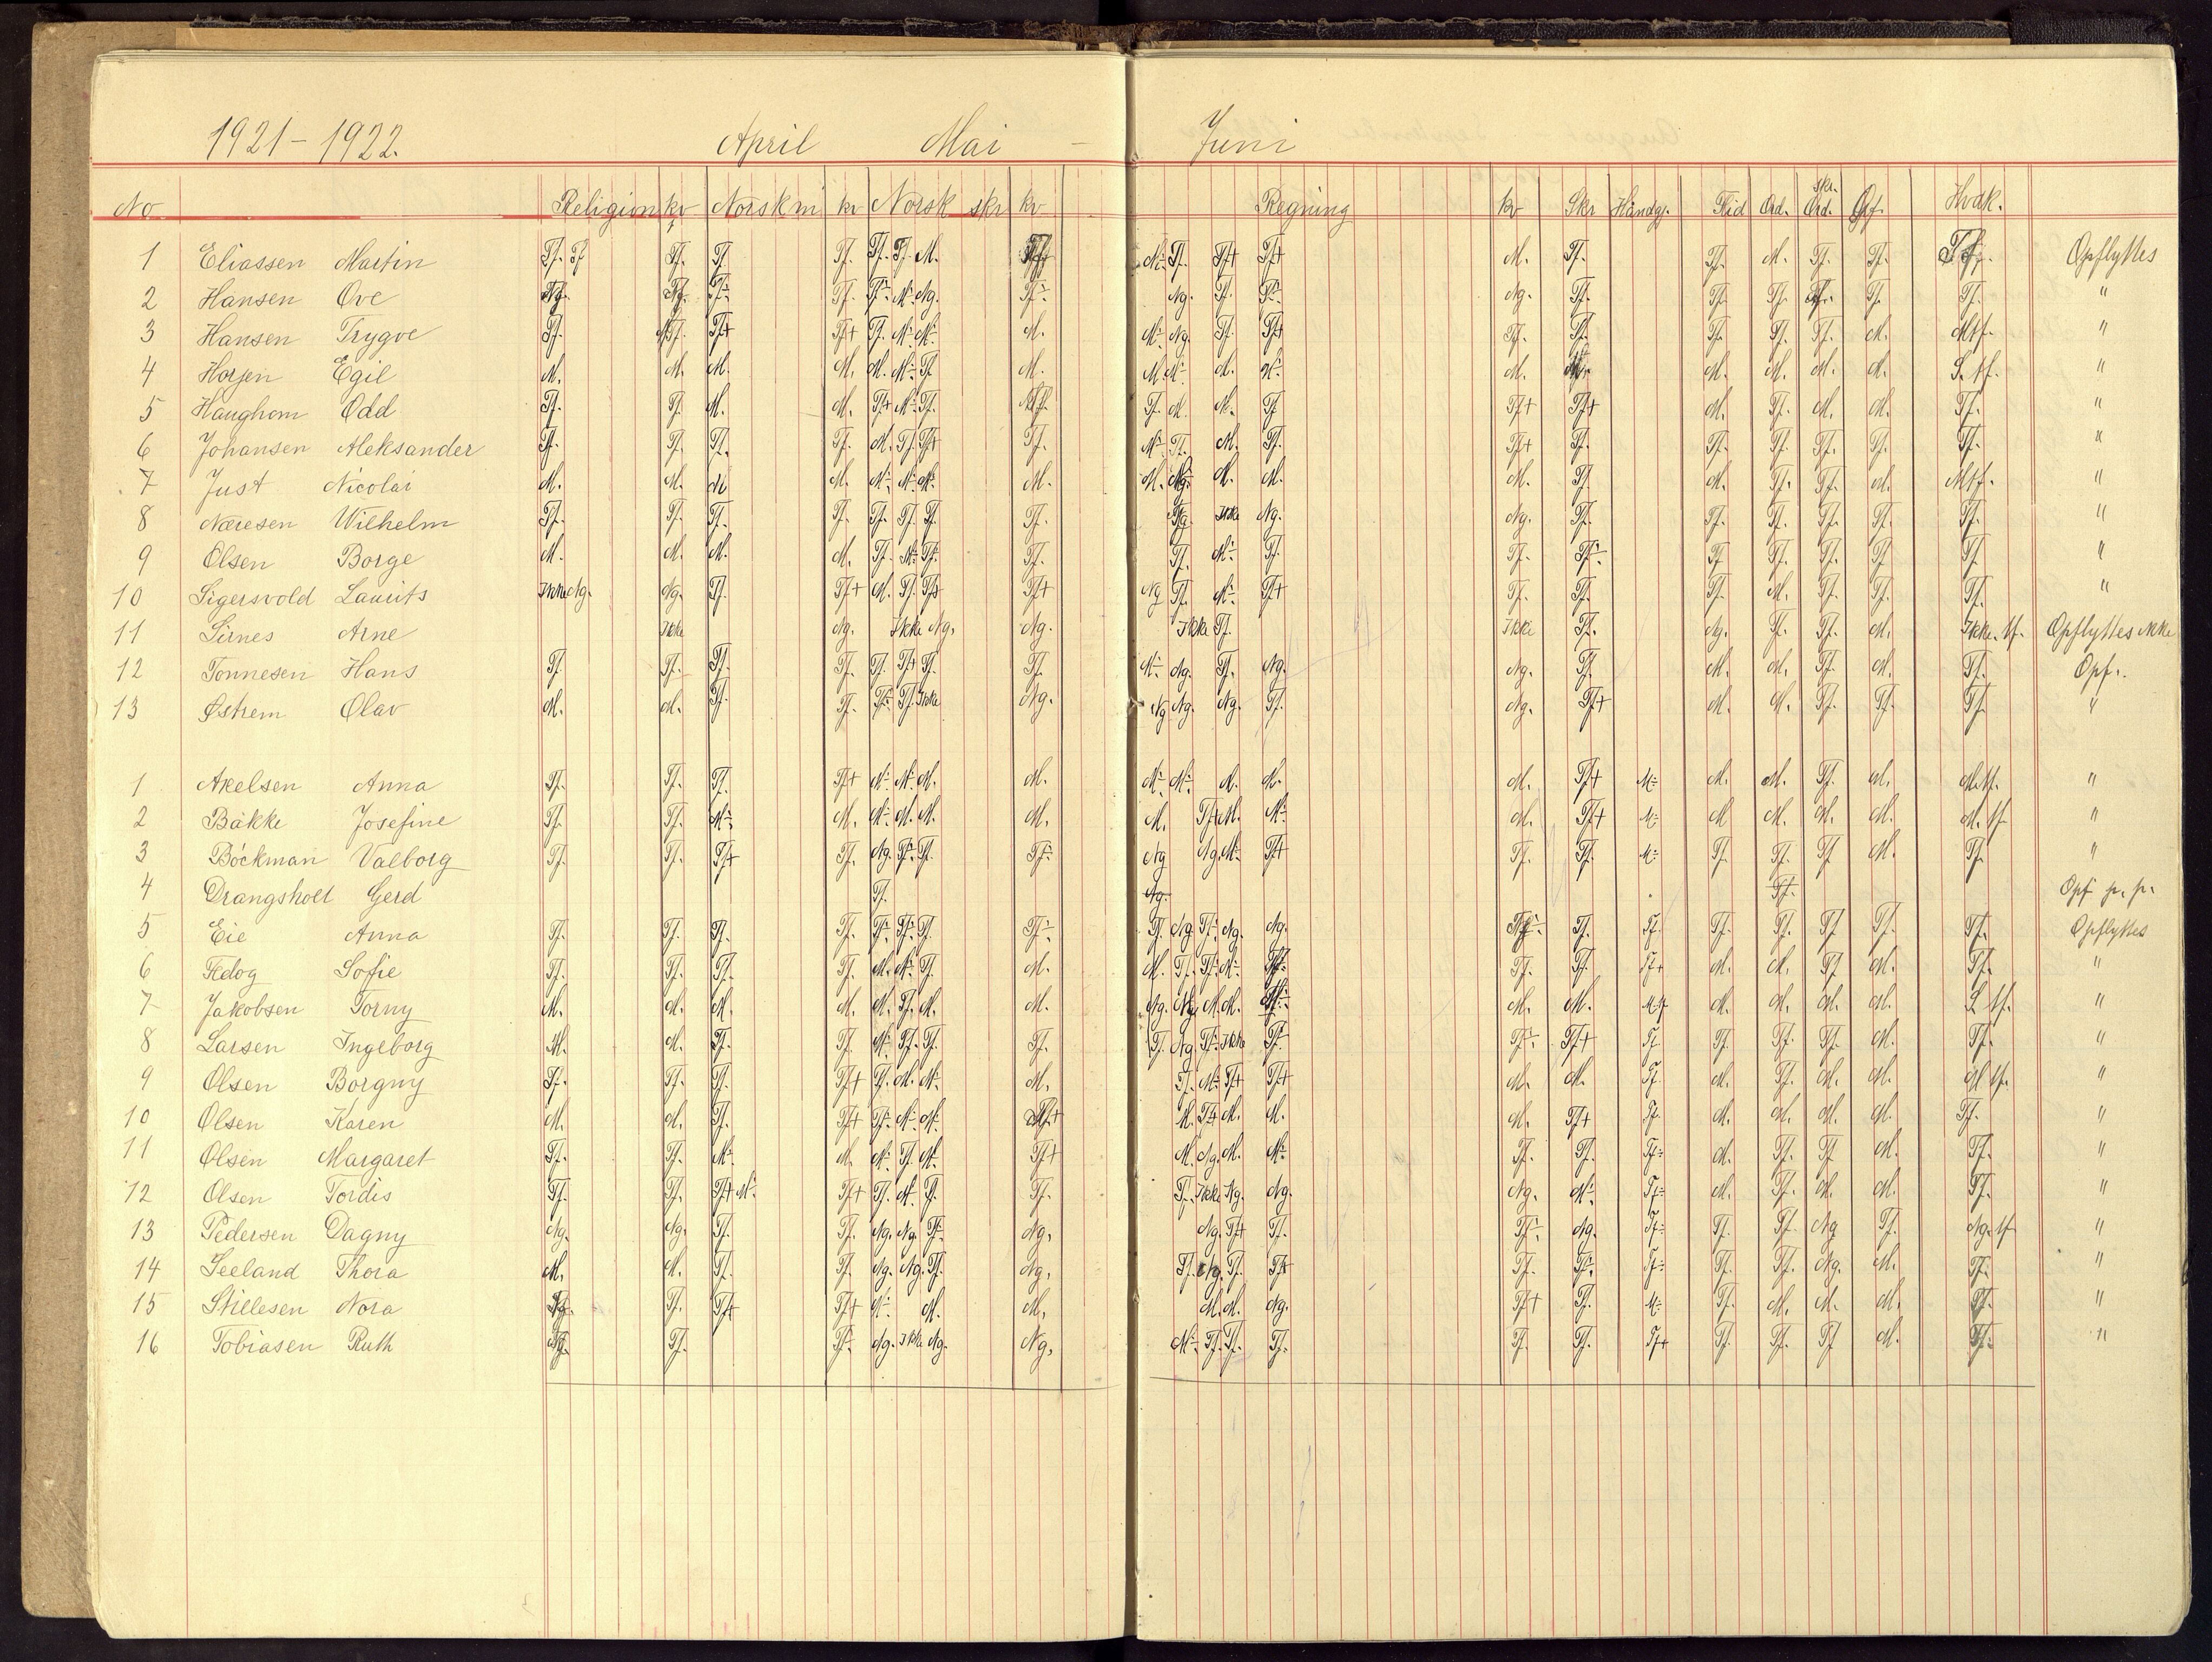 1921-1922. April Mai - Juni
No Religion kv Norsk m kv Norsk skr kv Regning kv Skr Håndgj. Flid Ord. skr. Ord. Opf. Hvdk.
1 Eliassen Martin Tf. Tf Tf. Tf. Tf. Tf. Tf. M. M÷ Tf. Tf+ Tf+ M. Tf. Tf. M. Tf. Tf. Tf. Opflyttes
2 Hansen Ove Ng. Tf÷ Tf. Tf÷ M÷ Ng. Tf÷ Ng. Tf. Tf÷ Ng. Tf. Tf. Tf. Tf. Tf. "
3 Hansen Trygve Tf. Tf. Tf+ Tf+ Tf. M÷ M÷ M. M÷ Ng. Tf. Tf+ Tf. Tf. Tf. Tf. Tf. M. Mtf. "
4 Egil M. M. M. M. M. M÷ Tf M. M. M÷ M. M÷ M. M. M. M. M. S. tf. "
5 Haughom Odd Tf. Tf. M. M. Tf+ M÷ Tf. Tf. M. M. Tf Tf+ Tf+ M. Tf. M. M. Tf. "
6 Johansen Aleksander Tf. Tf. Tf. Tf. M. Tf. Tf+ Tf. M÷ Tf. M. Tf. Tf+ Tf. Tf. Tf. Tf. Tf. Tf. "
7 Just Nicolai M. M. M M. M÷ M÷ M÷ M. M. M. M. M. Tf. M. Tf. Tf. M. Mtf. "
8 Næresen Wilhelm Tf. Tf. Tf. Tf. Tf. Tf. Tf. Tf. Ikke Ng. Ng. Tf. Tf. Tf. Tf. Tf. Tf. "
9 Olsen Borge M. M. M. M. Tf. M÷ Tf÷ Tf. Tf. M÷ Tf. Tf. Tf÷ Tf Tf. Tf. Tf Tf. "
10 Sigersvold Laurits Ikke Ng. Ng. Tf. Tf+ M. Tf. Tf+ Tf+ Ng Tf. M÷ Tf+ Tf. Tf. Tf. M. Tf. Tf. Tf. "
11 Sirnes Arne Ikke Ng. Ikke Ng. Ng. Ikke Tf. Ikke Tf. Ng. Tf. Tf. M. Ikke. tf. Opflyttes ikke
12 Tønnesen Hans Tf. Tf. Tf. Tf. Tf. Tf+ Tf. Tf. M÷ Ng. Tf. Ng. Ng. Tf. M. M. Tf. M. Tf. Opf.
13 Østrem Olav M. M. Tf. Tf. Tf÷ Tf. Ikke Ng. Ng Ng. Ng. Tf. Ng. Tf+ M. M. Tf. Tf. Tf. "
1 Akelsen Anna Tf. Tf. Tf. Tf+ M÷ M÷ M. M. M÷ M÷ M. M. M. Tf+ M÷ M. M. Tf. M. M.tf. "
2 Bakke Josefine Tf. Tf. M÷ M. M÷ M. M. M. M. Tf+ M. M÷ M. Tf+ M÷ M M. M. M. M. tf. "
3 Böckman Valborg Tf. Tf. Tf+ Tf. Ng. Tf÷ Tf. Tf÷ Ng Ng. M÷ Tf+ Tf. Tf. M÷ Tf. Tf. Tf M. Tf. "
4 Drangsholt Gerd Tf. Ng. Tf. Opf p. p.
5 Eie Anna Tf. Tf. Tf. Tf. Tf÷ Tf÷ Tf. Tf÷ Tf. Ng. Tf÷ Ng. Ng. Tf. Tf. Tf. Tf. Tf. Tf. Tf. Opflyttes
6 Fedog Sofie Tf. Tf. Tf. Tf. M. M÷ Tf. M. M. Tf. Tf÷ M÷ Tf. Tf. Tf+ M. M. Tf. M. Tf. "
7 Jakobsen Torny M. M. M. M. M. Tf. M. M. Ng. Ng. M. M. M. M. Mtf M. M. M. M. S. tf. "
8 Larsen Ingeborg M. M. Tf. Tf. M÷ Tf. Tf. Tf. Tf. Ng. Tf÷ Ikke Tf÷ Tf÷ Tf+ Tf Tf. Tf. Tf. M. Tf. "
9 Olsen Borgny Tf. Tf. Tf. Tf+ Tf. M. M÷ M. Tf. M÷ Tf+ Tf+ M. M. Tf. M. Tf. M. M. M tf. "
10 Olsen Karen M. M. Tf. Tf+ Tf÷ M÷ M÷ M. Tf+ M. M. M. Tf+ Tf. M. M. M. M. Tf. "
11 Olsen Margaret Tf. Tf. M÷ M. M÷ Tf. M÷ Tf+ M. Ng. M. M÷ Tf. Tf. Tf÷ M. Tf. Tf M. Tf. "
12 Olsen Tordis Tf. Tf. Tf+ M÷ Tf+ Tf. M÷ Tf. Tf. Tf. Ikke Ng. Ng. Ng. M÷ Tf÷ M. Tf. M. M. Tf. "
13 Pedersen Dagny Ng. Ng. Tf. Tf. Ng. Ng. Tf÷ Ng. Ng. Tf+ Tf. Tf÷ Ng. Tf÷ Tf. Tf. Ng Tf. Ng. tf "
14 Seeland Thora M. M. Tf. Tf. Ng. Ng. Tf. Ng. Tf. Ng. Tf. Tf+ Tf. Tf÷ Tf÷ Tf. Tf. Ng. M. Tf. "
15 Stillesen Nora Tf. Tf+ Tf+ M÷ M. M. M. M. Ng. Tf+ Tf. M÷ Tf. M. M. M. Tf. "
16 Tobiasen Ruth Tf. Tf÷ Ng. Ikke Ng. Ng. M÷ Tf. Tf. Tf. Tf. Tf. Tf+ Tf. Tf. Tf M. Tf. "